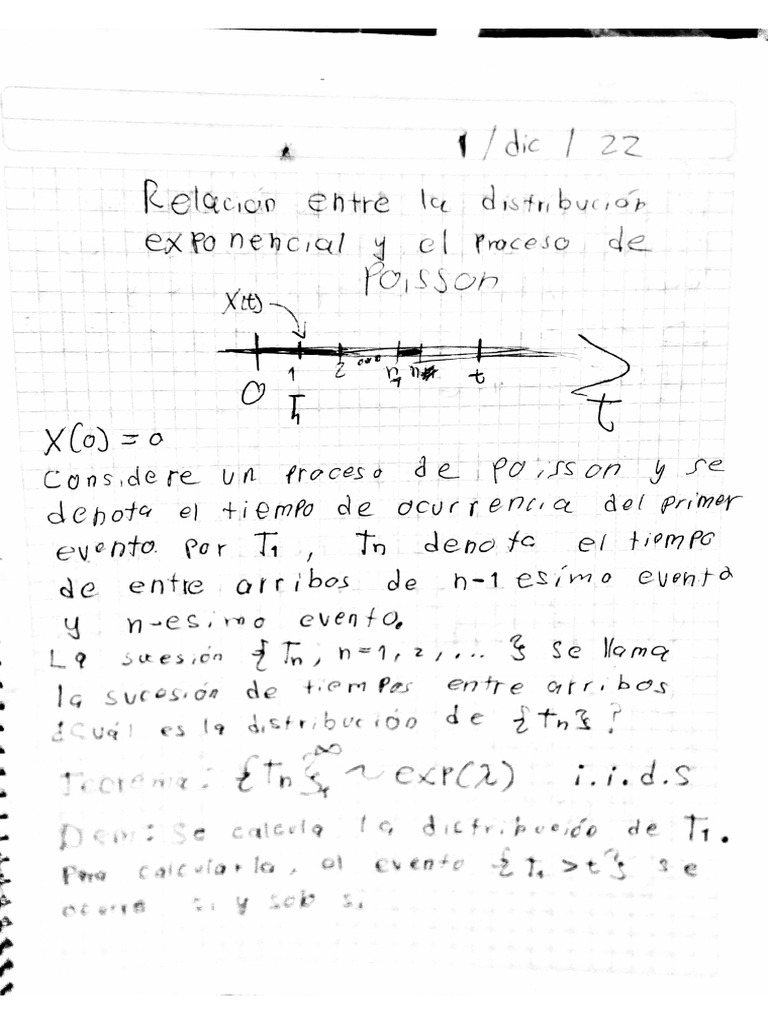 1 / dic / 22
Relación entre la distribución
exponencial y el proceso de
Poisson
X(t)
0 1 2 ... n t
T₁ t
X(0) = 0
Considere un proceso de poisson y se
denota el tiempo de ocurrencia del primer
evento por T₁, Tn denota el tiempo
de entre arribos de n-1 esímo evento
y n-esimo evento.
La sucesión {Tn, n=1, 2, ... } se llama
la sucesión de tiempos entre arribos
¿Cuál es la distribución de {Tn}?
Teorema: {Tn}₁^∞ ~ exp(λ) i.i.d.s
Dem: Se calcula la distribución de T₁.
Para calcularla, el evento {T₁ > t} se
ocurre si y solo si